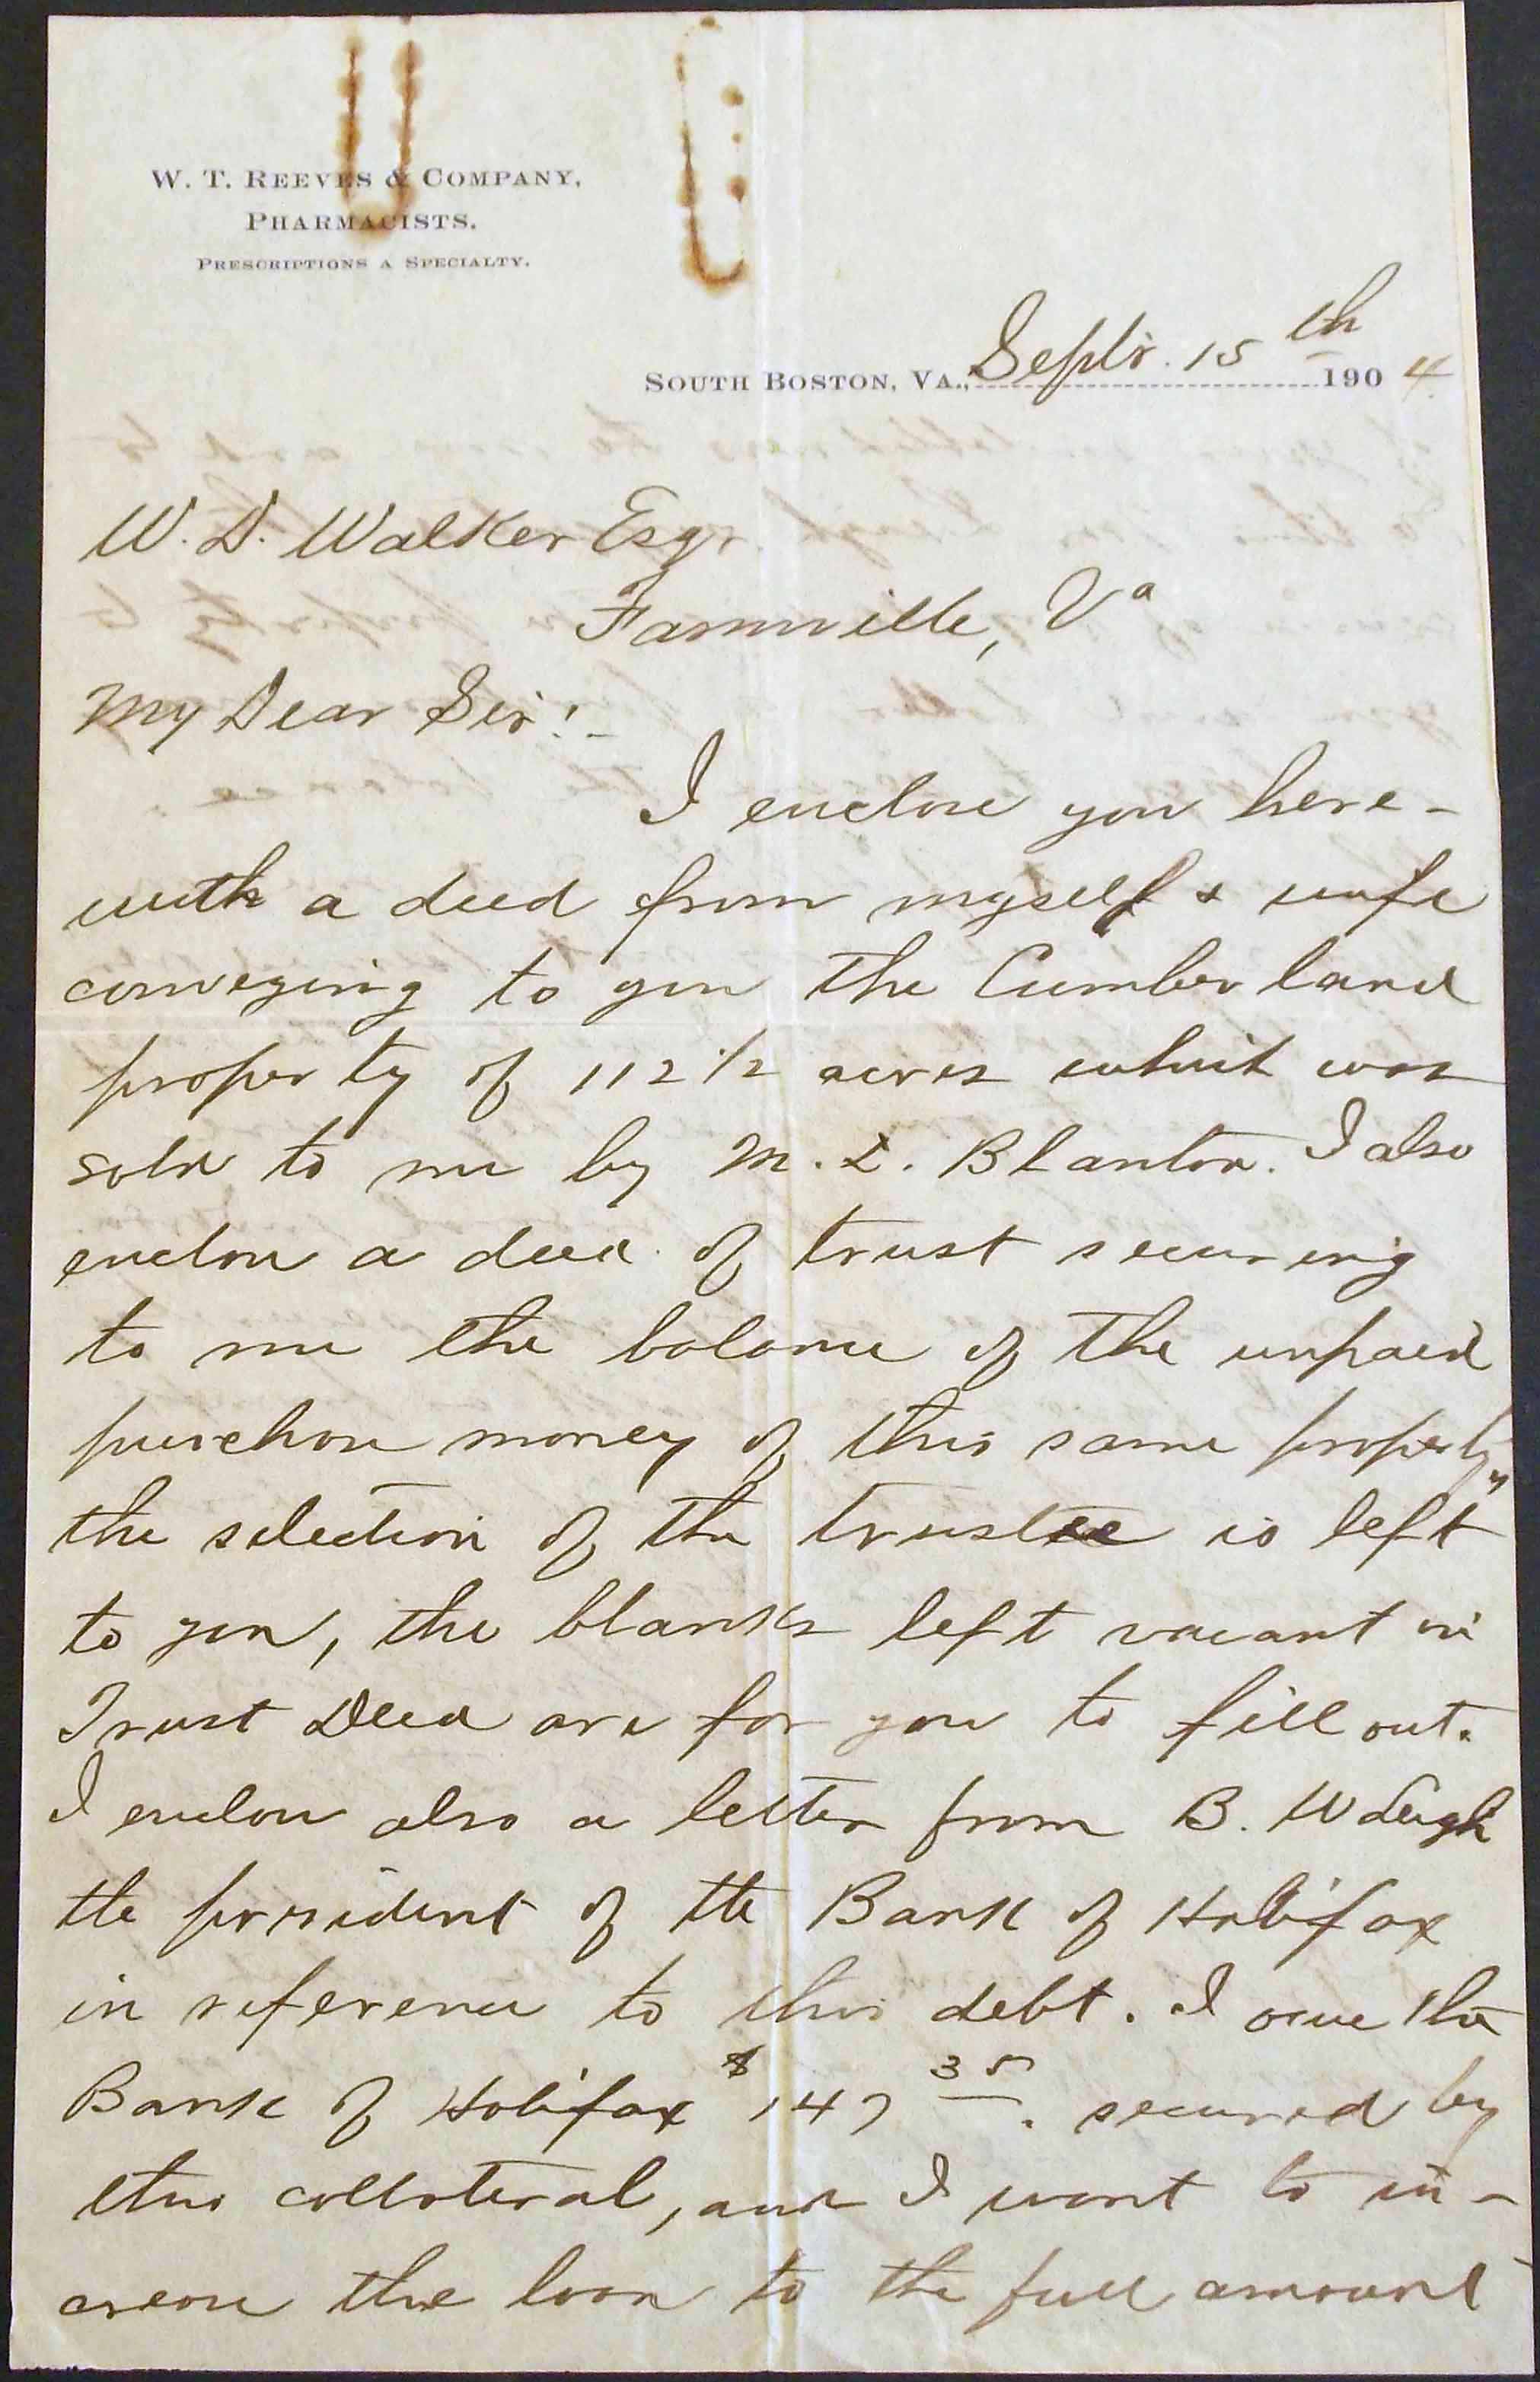 W. T. REEVES & COMPANY,
PHARMACISTS.
PRESCRIPTIONS A SPECIALTY.
SOUTH BOSTON, VA., Septr. 15th 1904.
W. D. Walker Esqr.
Farmville, Va
My Dear Sir!-
I enclose you here-
with a deed from myself & wife
conveying to you the Cumberland
property of 112 1/2 acres which was
sold to me by M. L. Blanton. I also
enclose a deed of trust securing
to me the balance of the unpaid
purchase money of this same property,
the selection of the trustee is left
to you, the blanks left vacant in
Trust Deed are for you to fill out.
I enclose also a letter from B. W Leigh
the president of the Bank of Halifax
in reference to this debt. I owe the
Bank of Halifax $147 35. secured by
this collateral, and I want to in-
crease the loan to the full amount